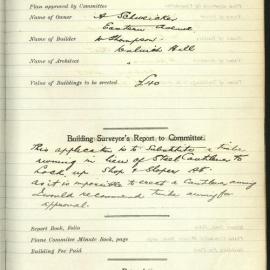 Plan approved by Committee
Name of Owner A Schweicker
Eastern Avenue
Name of Builder A Thompson
Name of Architect "
Value of Buildings to be erected £40
Building Surveyor's Report to Committee.
This application is to Substitute a timber
awning in lieu of Steel Cantilever to
Lock up Shop
as it is impossible to erect a Cantilever awning
I would recommend timber awning for
approval.
Report Book, Folio
Plans Committee Minute Book, page
Building Fee Paid